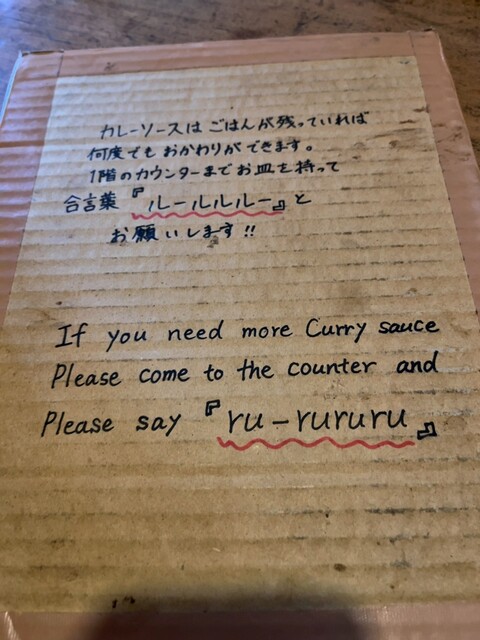 カレーソースは ごはんが残っていれば
何度でも おかわりが できます。
1階のカウンターまで お皿を持って
合言葉『ルールルルー』と
お願いします!!
If you need more Curry sauce
Please come to the counter and
Please say 『ru-rururu』